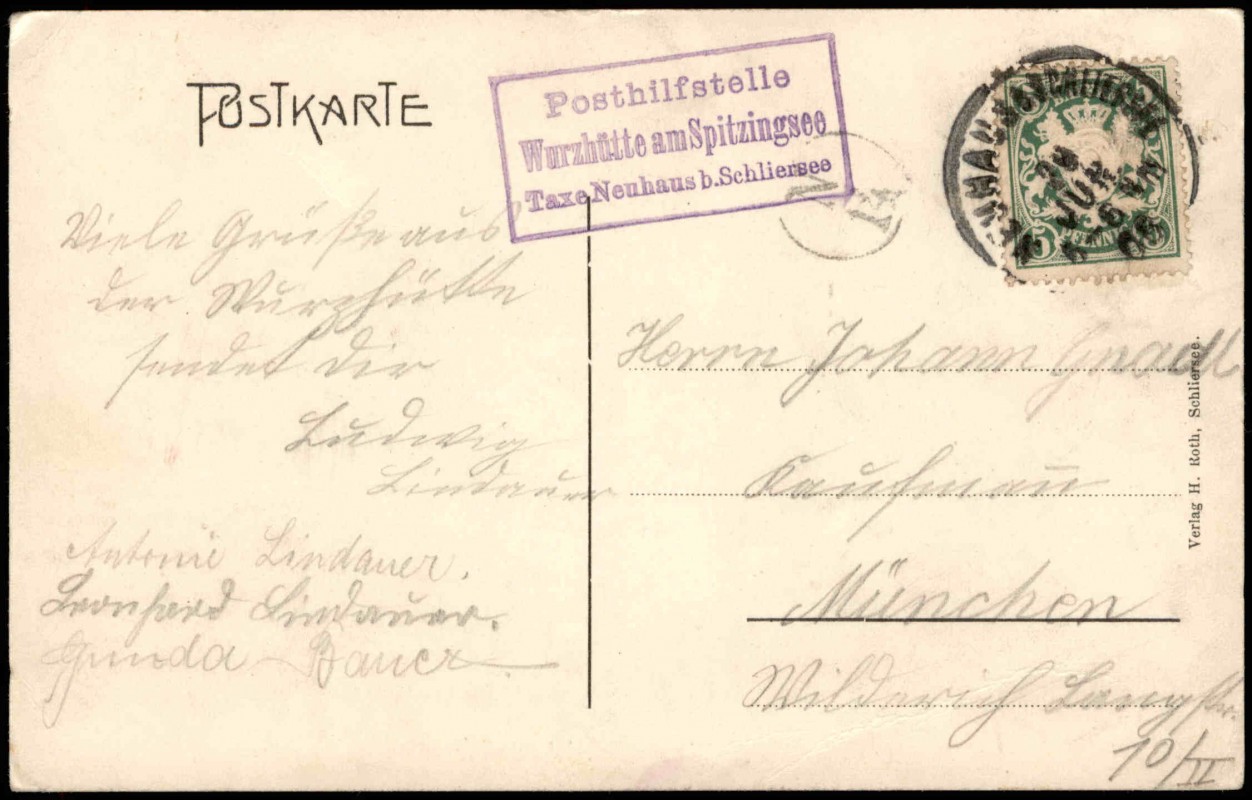 POSTKARTE
Posthilfstelle
Wurzhütte am Spitzingsee
Taxe Neuhaus b. Schliersee
Viele Grüße aus
der Wurzhütte
sendet Dir
Ludwig
Lindauer
Antonie Lindauer.
Leonhard Lindauer.
Gunda Bauer
NEUHAUS B SCHLIERSEE
JUN
5
Herrn Johann Gnadl
Kaufmañ
München
Wilderich Langstr.
10/II
Verlag H. Roth, Schliersee.